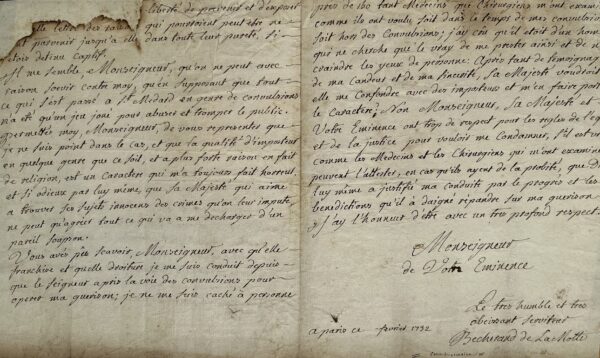 liberté de prevenir et d'exposer
qui pouvoient peut être ne
et parvenir jusqu'a elle dans toute leur pureté, si
étois detenu Captif.
Il me semble, Monseigneur, qu'on ne peut avec
raison sévir contre moy, qu'en supposant que tout
ce qui s'est passé a St Medard en genre de convulsions
n'a été qu'un jeu joué pour abuser et tromper le public.
permettés moy, Monseigneur, de vous representer que
je ne suis point dans le cas, et que la qualité d'imposteur
en quelque genre que ce soit, et a plus forte raison en fait
de religion, est un Caractere qui m'a toujours fait horreur,
et si odieux par luy même, que Sa Majesté qui aime
a trouver ses sujets innocens des crimes qu'on leur impute,
ne peut qu'agréer tout ce qui va a me decharger d'un
pareil soupçon.
Vous avés pû scavoir, Monseigneur, avec qu'elle
franchise et quelle droiture je me suis conduit depuis
que le Seigneur a pris la voie des convulsions pour
operer ma guerison; je ne me suis caché a personne
près de 160 tant Medecins que Chirurgiens m'ont examiné
comme ils ont voulu, soit dans le temps de mes convulsions
soit hors des Convulsions; j'ay cru qu'il étoit d'un homme
qui ne cherche que le vray de me prester ainsi et de ne
craindre les yeux de personne. Après tant de temoignages
de ma Candeur et de ma sincerité, Sa Majesté voudroit
elle me Confondre avec des imposteurs et m'en faire porter
le Caractere; Non Monseigneur, Sa Majesté et
Votre Eminence ont trop de respect pour les regles de l'equité
et de la justice pour vouloir me Condamner, s'il est vray
comme les Medecins et les Chirurgiens qui m'ont examiné
peuvent l'attester, en cas qu'ils ayent de la probité, que Dieu
luy même a justifié ma conduit par le progrès et les
benedictions qu'il a daigné répandre sur ma guerison.
J'ay l'honneur d'être avec un tres profond respect.
Monseigneur
de Votre Eminence
Le tres humble et tres
obeissant serviteur
a paris ce fevrier 1732
Becherand de La Motte